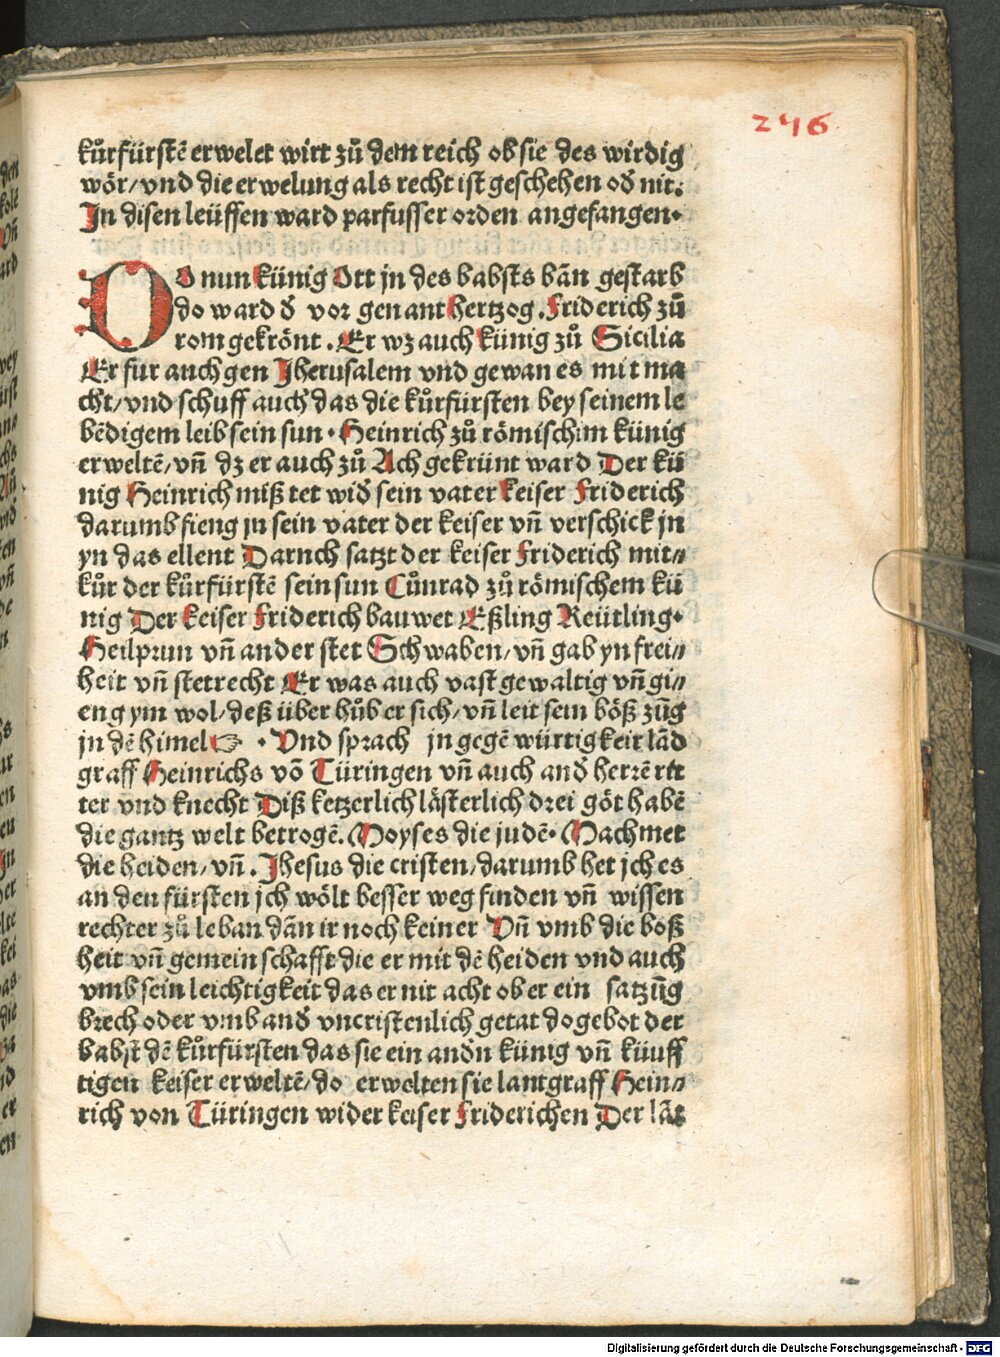 246
kůrfürstē erwelet wirt zů dem reich ob sie des wirdig
wör/vnd die erwelung als recht ist geschehen od̕ nit.
In disen leüffen ward parfusser orden angefangen.
DO nun künig Ott jn des babsts bān gestarb
do ward d̕ vor genant hertzog. Friderich zů
rom gekrönt. Er wz auch künig zů Sicilia
Er fur auch gen Jherusalem vnd gewan es mit ma
cht/vnd schuff auch das die kůrfürsten bey seinem le
bēdigem leib sein sun. Heinrich zů römischem künig
erweltē/vn̄ dz er auch zů Ach gekrünt ward Der kü
nig Heinrich miß tet wid̕ sein vater keiser Friderich
darumb fieng jn sein vater der keiser vn̄ verschick jn
yn das ellent Darnch satzt der keiser Friderich mit⸗
kůr der kůrfürstē sein sun Cůnrad zů römischem kü
nig Der keiser Friderich bauwet Eßling Reütling.
Heilprun vn̄ ander stet Schwaben/vn̄ gab yn frei⸗
heit vn̄ stetrecht Er was auch vast gewaltig vn̄ gi⸗
eng ym wol/deß über hůb er sich/vn̄ leit sein böß zūg
jn dē himel☞ . Vnd sprach jn gegē würtigkeit lād
graff Heinrichs vō Türingen vn̄ auch and̕ herrē rit
ter vnd knecht Diß ketzerlich lästerlich drei göt habē
die gantz welt betrogē. Moyses die judē. Machmet
die heiden/vn̄. Jhesus die cristen/darumb het jch es
an den fürsten jch wölt besser weg finden vn̄ wissen
rechter zů leban dān ir noch keiner Vn̄ vmb die boß
heit vn̄ gemein schafft die er mit dē heiden vnd auch
vmb sein leichtigkeit das er nit acht ob er ein satzūg
brech oder vmb and̕ vncristenlich getat do gebot der
babst dē kůrfürsten das sie ein and̕n künig vn̄ küuff
tigen keiser erweltē/do erwolten sie lantgraff Hein⸗
rich von Türingen wider keiser Friderichen Der lāt
Digitalisierung gefördert durch die Deutsche Forschungsgemeinschaft - DFG